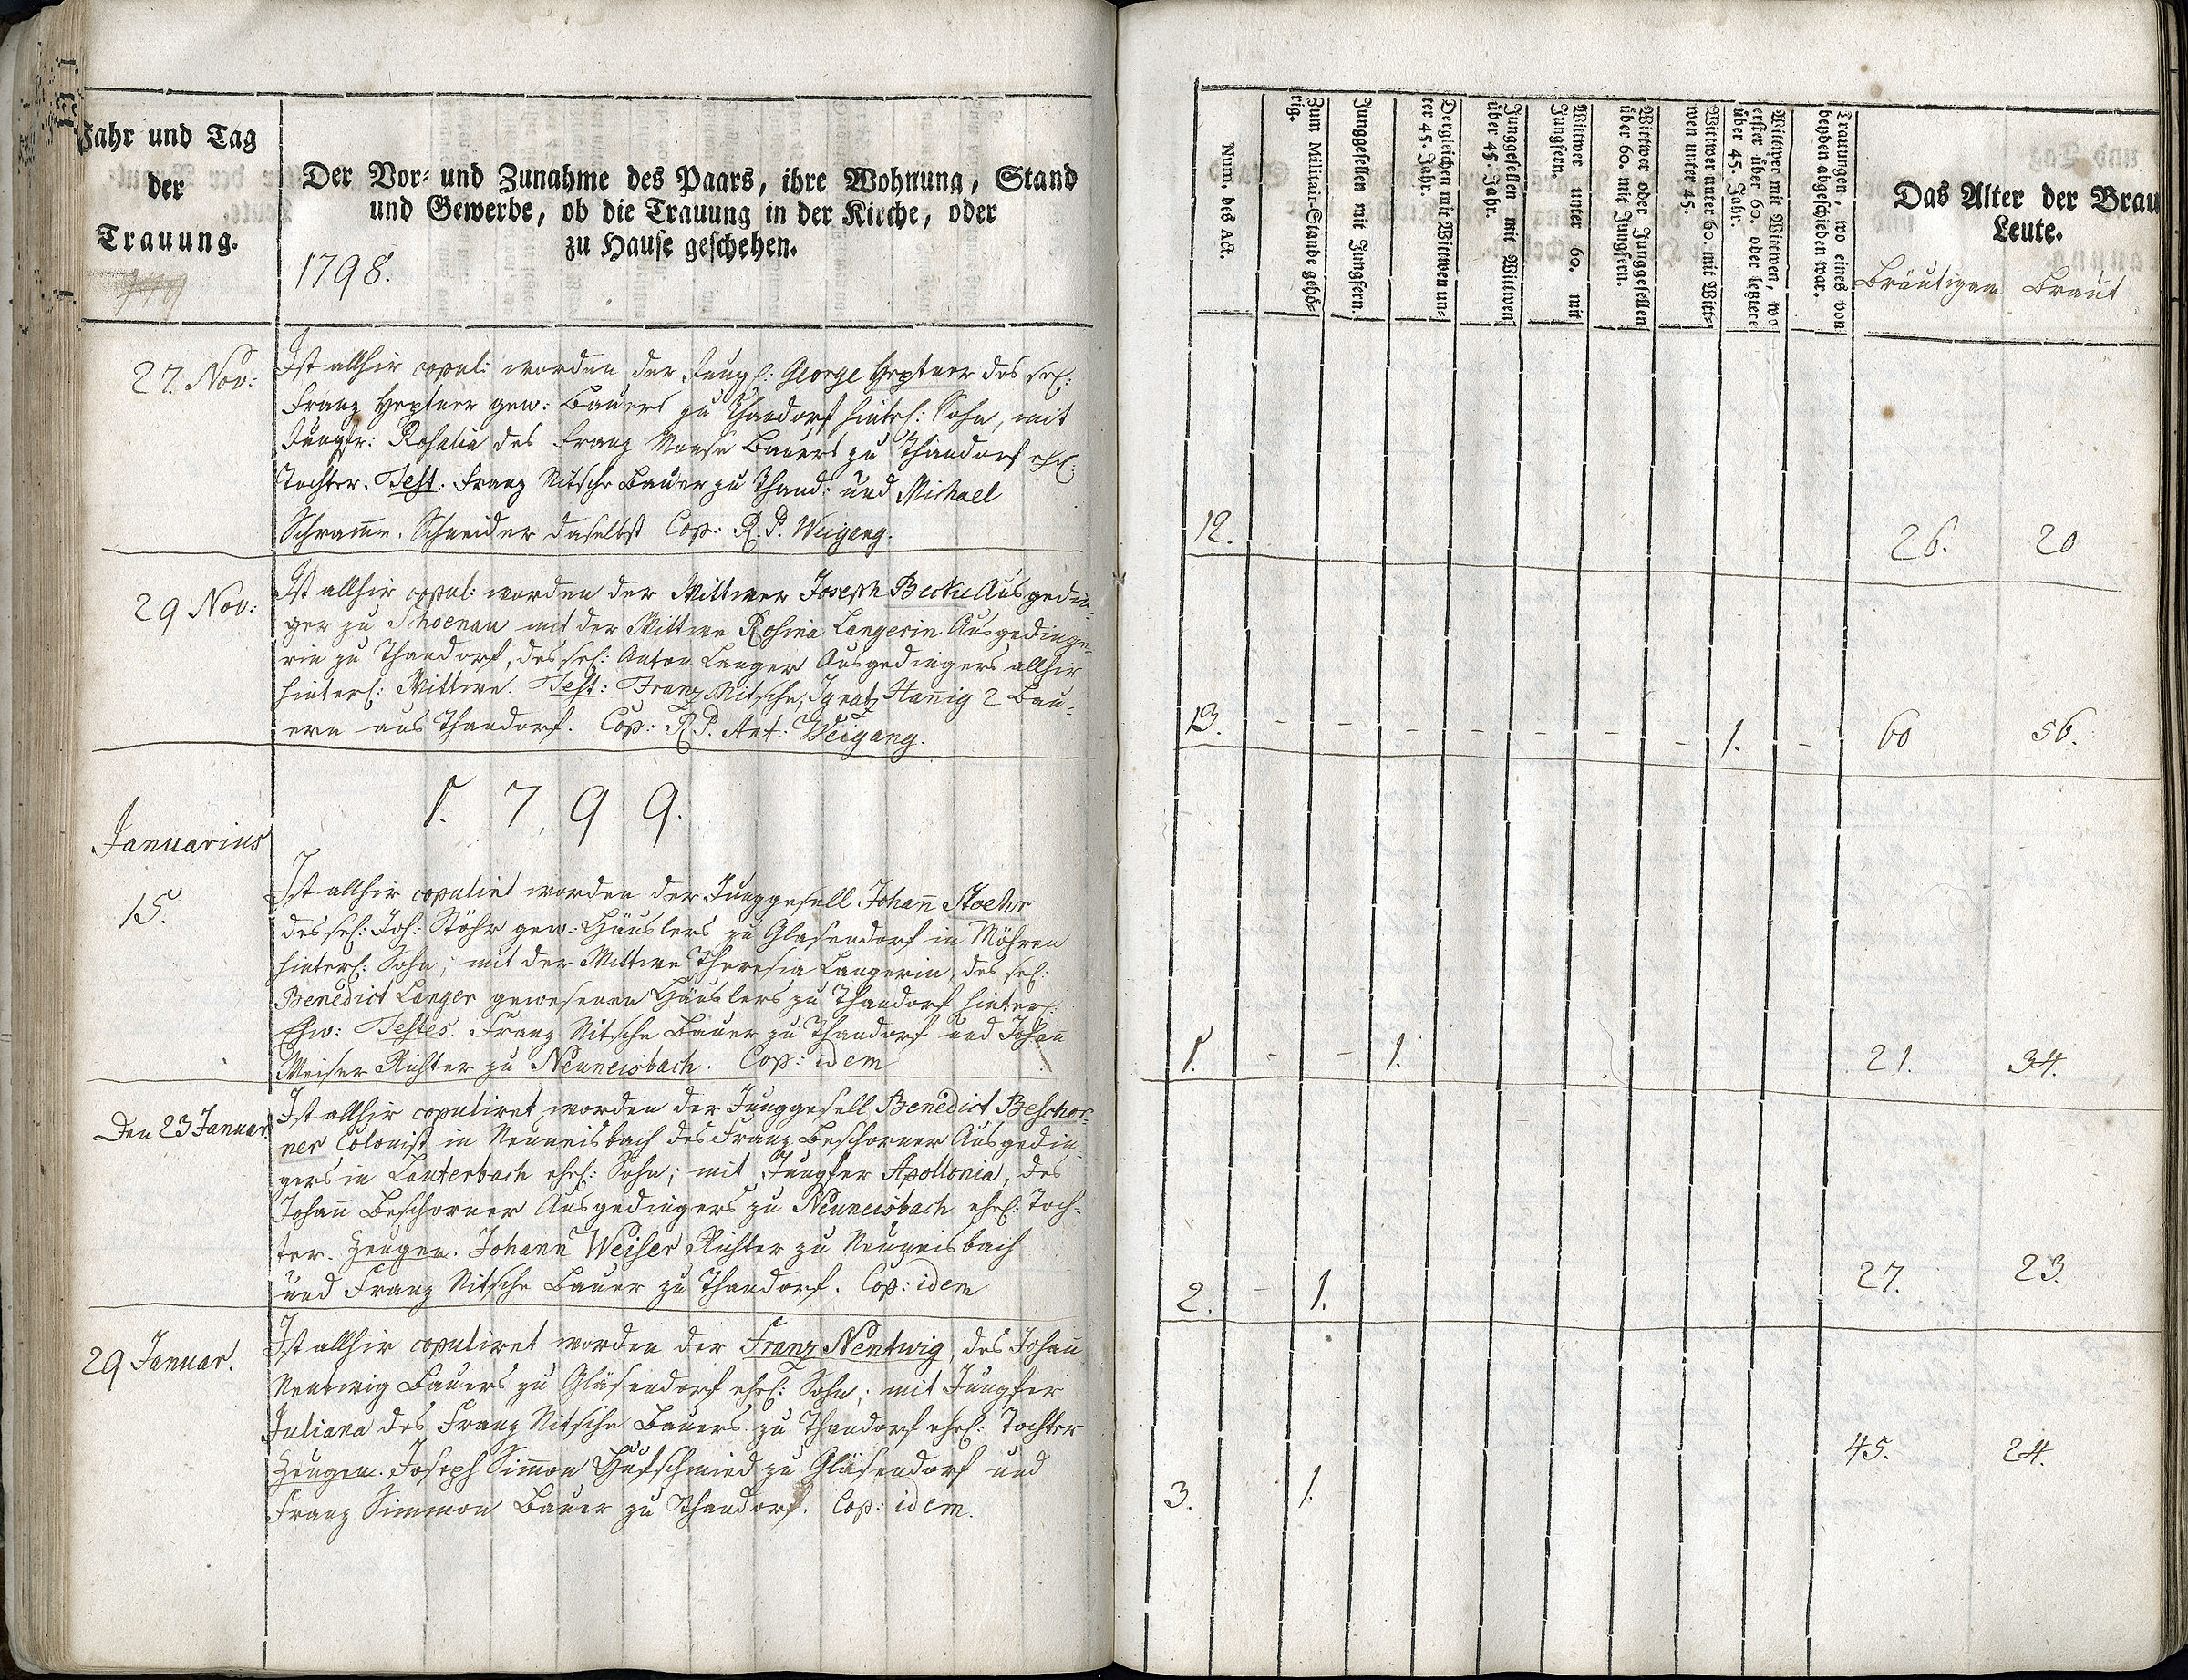 Jahr und Tag
der
Trauung.
Der Vor- und Zunahme des Paars, ihre Wohnung, Stand
und Gewerbe, ob die Trauung in der Kirche, oder
zu Hause geschehen.
1798.
27. Nov:
Ist allhir copul: worden der Jungg: George Heptner des sel:
Franz Heptner gew: Bauers zu Thandorf hinterl: Sohn, mit
Jungfr: Rosalia des Franz Bauers zu Thandorf ehl:
Tochter. Test. Franz Nitsche Bauer zu Thand: und Michael
Schram̄e. Schneider daselbst Cop: R. P. Weigang.
29 Nov:
Ist allhir copul: worden der Wittwer Joseph Ausgedin-
ger zu Schoenau mit der Wittwe Rosina Langerin Ausgedinge-
rin zu Thandorf, des sel: Anton Langer Ausgedingers allhir
hinterl: Wittwe. Test: Franz Nitsche, Ignatz Han̄ig 2 Bau-
ern aus Thandorf. Cop: R. P. Ant: Weigang.
1799.
Januarius
15.
Ist allhir copulirt worden der Junggesell Johan̄ Stoehr
des sel: Joh: Stöhr gew: Häuslers zu Glasendorf in Möhren
hinterl: Sohn; mit der Wittwe Theresia Langerin, des sel:
Benedict Langer gewesenen Häuslers zu Thandorf hinterl:
Ehw: Testes. Franz Nitsche Bauer zu Thandorf und Johan̄
Weiser Richter zu Neuneisbach. Cop: idem
Den 23 Januar
Ist allhir copuliret worden der Junggesell Benedict Beschor-
ner Colonist in Neuneisbach des Franz Beschorner Ausgedin-
gers in Lauterbach ehel: Sohn; mit Jungfer Apollonia, des
Johan̄ Beschorner Ausgedingers zu Neuneisbach ehel: Toch-
ter. Zeugen. Johann Weiser Richter zu Neuneisbach
und Franz Nitsche Bauer zu Thandorf. Cop: idem
29 Januar.
Ist allhir copuliret worden der Franz Nentwig, des Johan̄
Nentwig Bauers zu Gläsendorf ehel: Sohn; mit Jungfer
Juliana des Franz Nitsche Bauers zu Thandorf ehel: Tochter
Zeugen. Joseph Sim̄on Hufschmied zu Gläsendorf und
Franz Simmon Bauer zu Thandorf. Cop: idem.
Num. des Act.
Zum Militair-Stande gehö-
rig.
Junggesellen mit Jungfern.
Dergleichen mit Wittwen un-
ter 45. Jahr.
Junggesellen mit Wittwen
über 45. Jahr.
Wittwer unter 60. mit
Jungfern.
Wittwer oder Junggesellen
über 60. mit Jungfern.
Wittwer unter 60. mit Witt-
wen unter 45.
Wittwer mit Wittwen, wo
erster über 60. oder letztere
über 45. Jahr.
Trauungen, wo eines von
beyden abgeschieden war.
Das Alter der Brau
Leute.
Bräutigam Braut
12. 26. 20
13. - - - - - - - 1. - 60 56.
1. - - 1. 21. 34.
2. - 1. 27. 23.
3. 1. 45. 24.